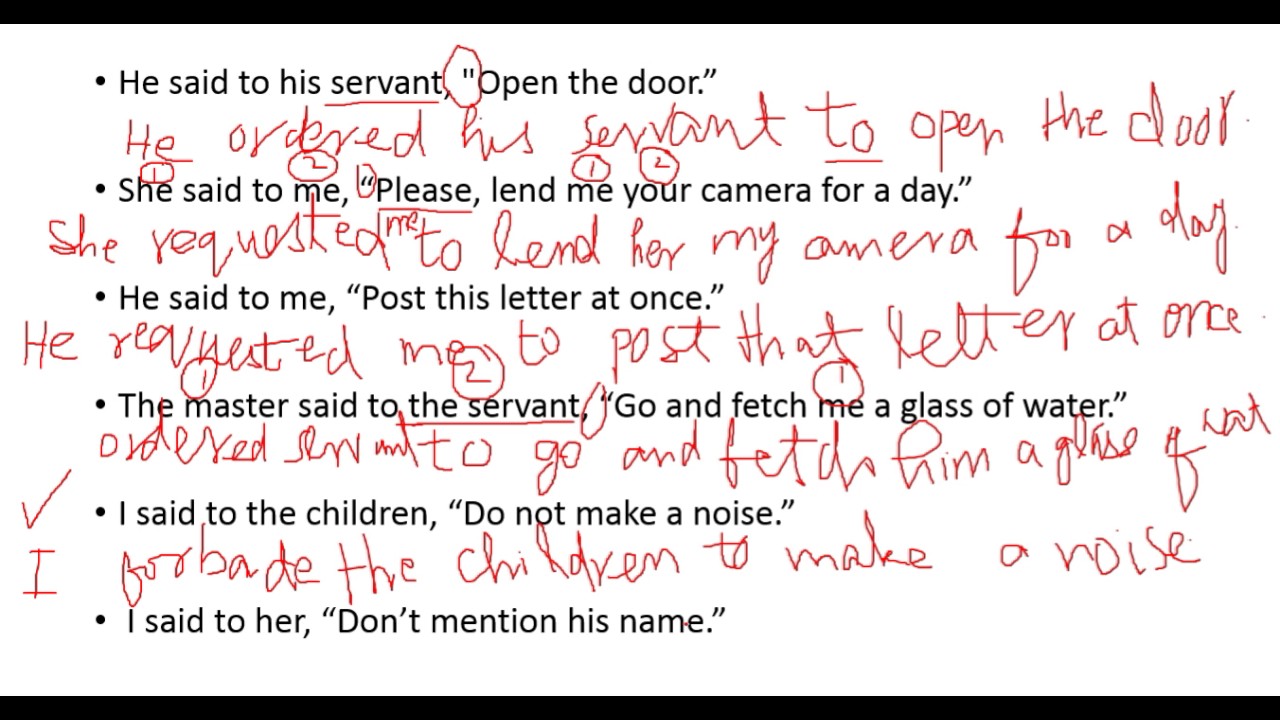 • He said to his servant, "Open the door.”
He ordered his servant to open the door.
1 2 1 2
• She said to me, “Please, lend me your camera for a day.”
She requested me to lend her my camera for a day.
• He said to me, “Post this letter at once.”
He requested me to post that letter at once.
1 2 1
• The master said to the servant, “Go and fetch me a glass of water.”
ordered servant to go and fetch him a glass of wat
• I said to the children, “Do not make a noise.”
I forbade the children to make a noise
• I said to her, “Don’t mention his name.”